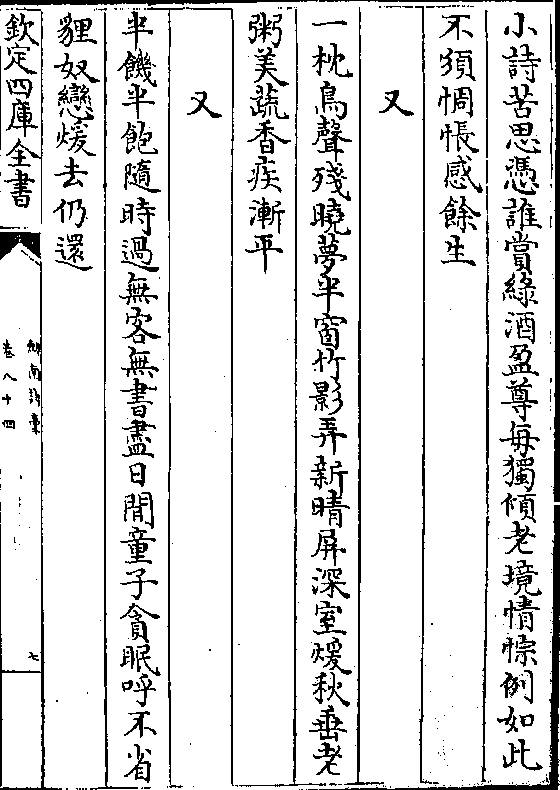 小詩苦思憑誰賞綠酒盈尊每獨傾老境情悰例如此
不須惆悵感餘生
又
一枕鳥聲殘曉夢半窗竹影弄新晴屏深室煖秋垂老
粥美蔬香疾漸平
又
半饑半飽隨時過無客無書盡日閒童子貪眠呼不省
貍奴戀煖去仍還
欽定四庫全書
劍南詩稾
卷八十四
七